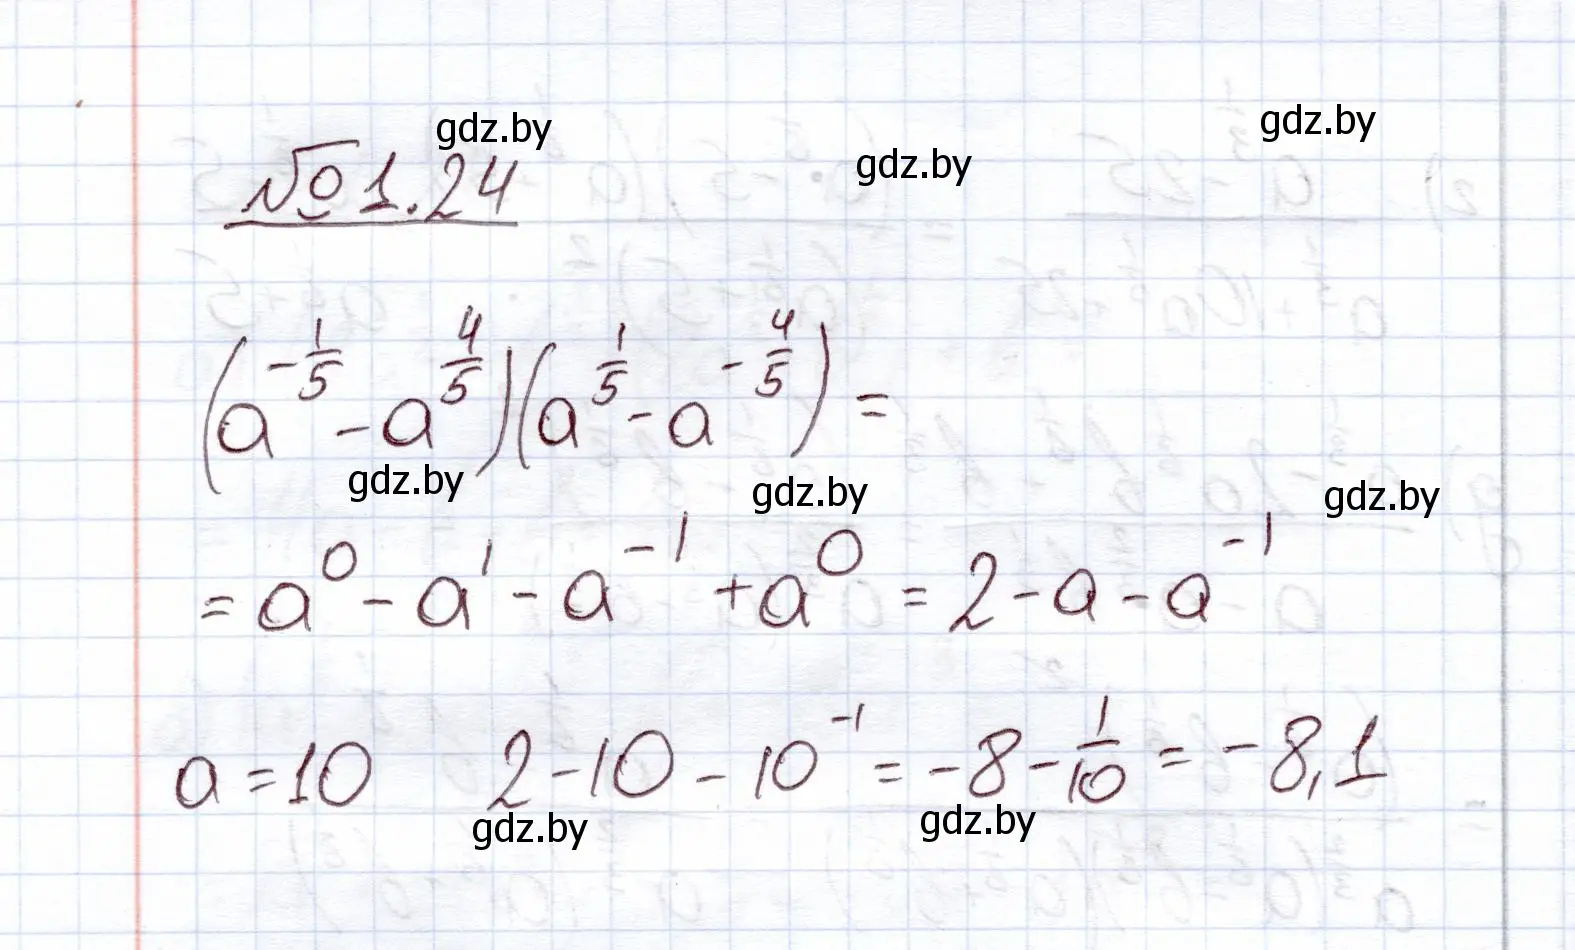 № 1.24
(a^{-1/5} - a^{4/5})(a^{1/5} - a^{-4/5}) =
= a^0 - a^1 - a^{-1} + a^0 = 2 - a - a^{-1}
a = 10 2 - 10 - 10^{-1} = -8 - 1/10 = -8,1
gdz.by
gdz.by
gdz.by
gdz.by
gdz.by
gdz.by
gdz.by
gdz.by